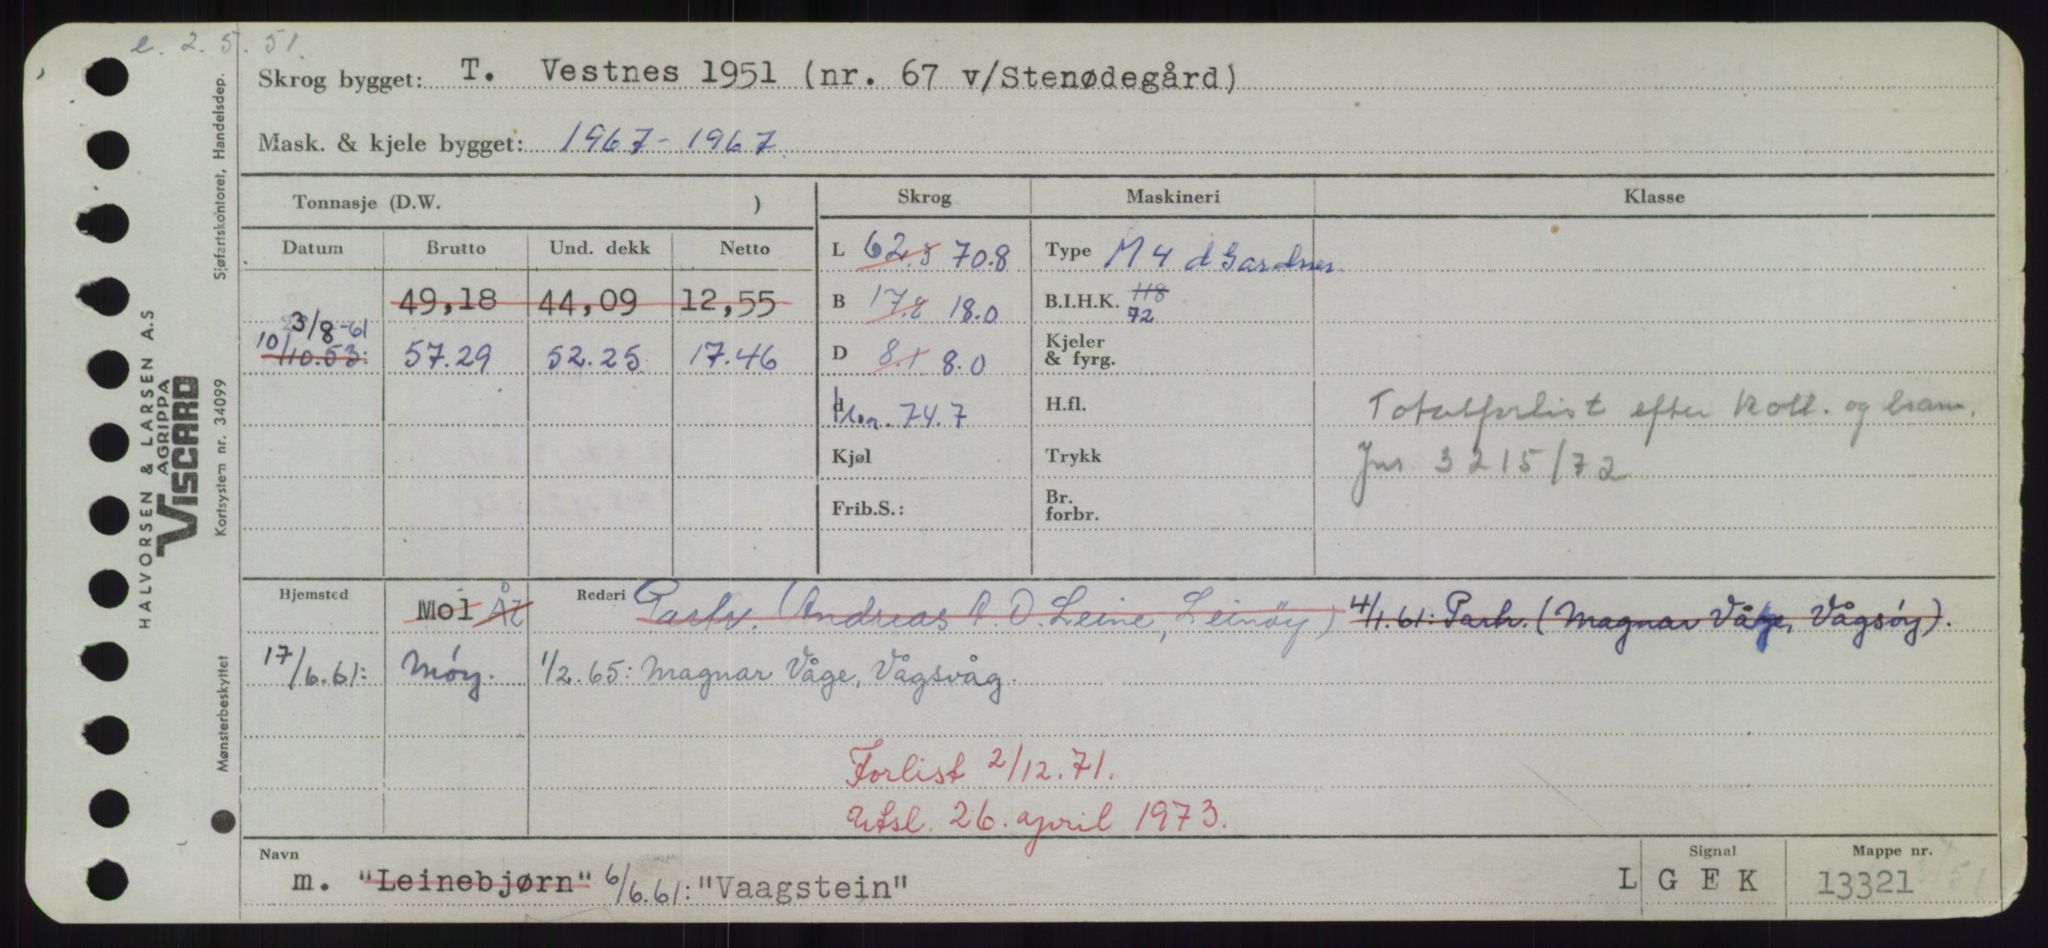 e. 2.5.51.
Skrog bygget: T. Vestnes 1951 (nr. 67 v/Stenødegård)
Mask. & kjele bygget: 1967 - 1967
Tonnasje (D.W. ) Skrog Maskineri Klasse
Datum Brutto Und. dekk Netto L 62.3 70.8 Type M 4 d Gardner
49,18 44,09 12,55 B 17.8 18.0 B.I.H.K. 118 72
3/8-61
10/10.53: 57.29 52.25 17.46 D 8.1 8.0 Kjeler & fyrg.
d 74.7 H.fl. Totalforlist efter koll. og
Kjøl Trykk Jnr. 3215/72
Frib.S.: Br. forbr.
Hjemsted Mol Ål Rederi Partr. (Andreas A. O. Leine, Leinøy) 4/1.61: Partr. (Magnar Våge, Vågsøy).
17/6.61: Måøy. 1/2.65: Magnar Våge, Vågsvåg.
Forlist 2/12.71.
Utsl. 26. april 1973.
Navn Signal Mappe nr.
m. "Leinebjørn" 6/6.61: "Vaagstein" L G E K 13321
HALVORSEN & LARSEN A.S
AGRIPPA
VISCARD
Sjøfartskontoret, Handelsdep.
Kortsystem nr. 34099
Mønsterbeskyttet